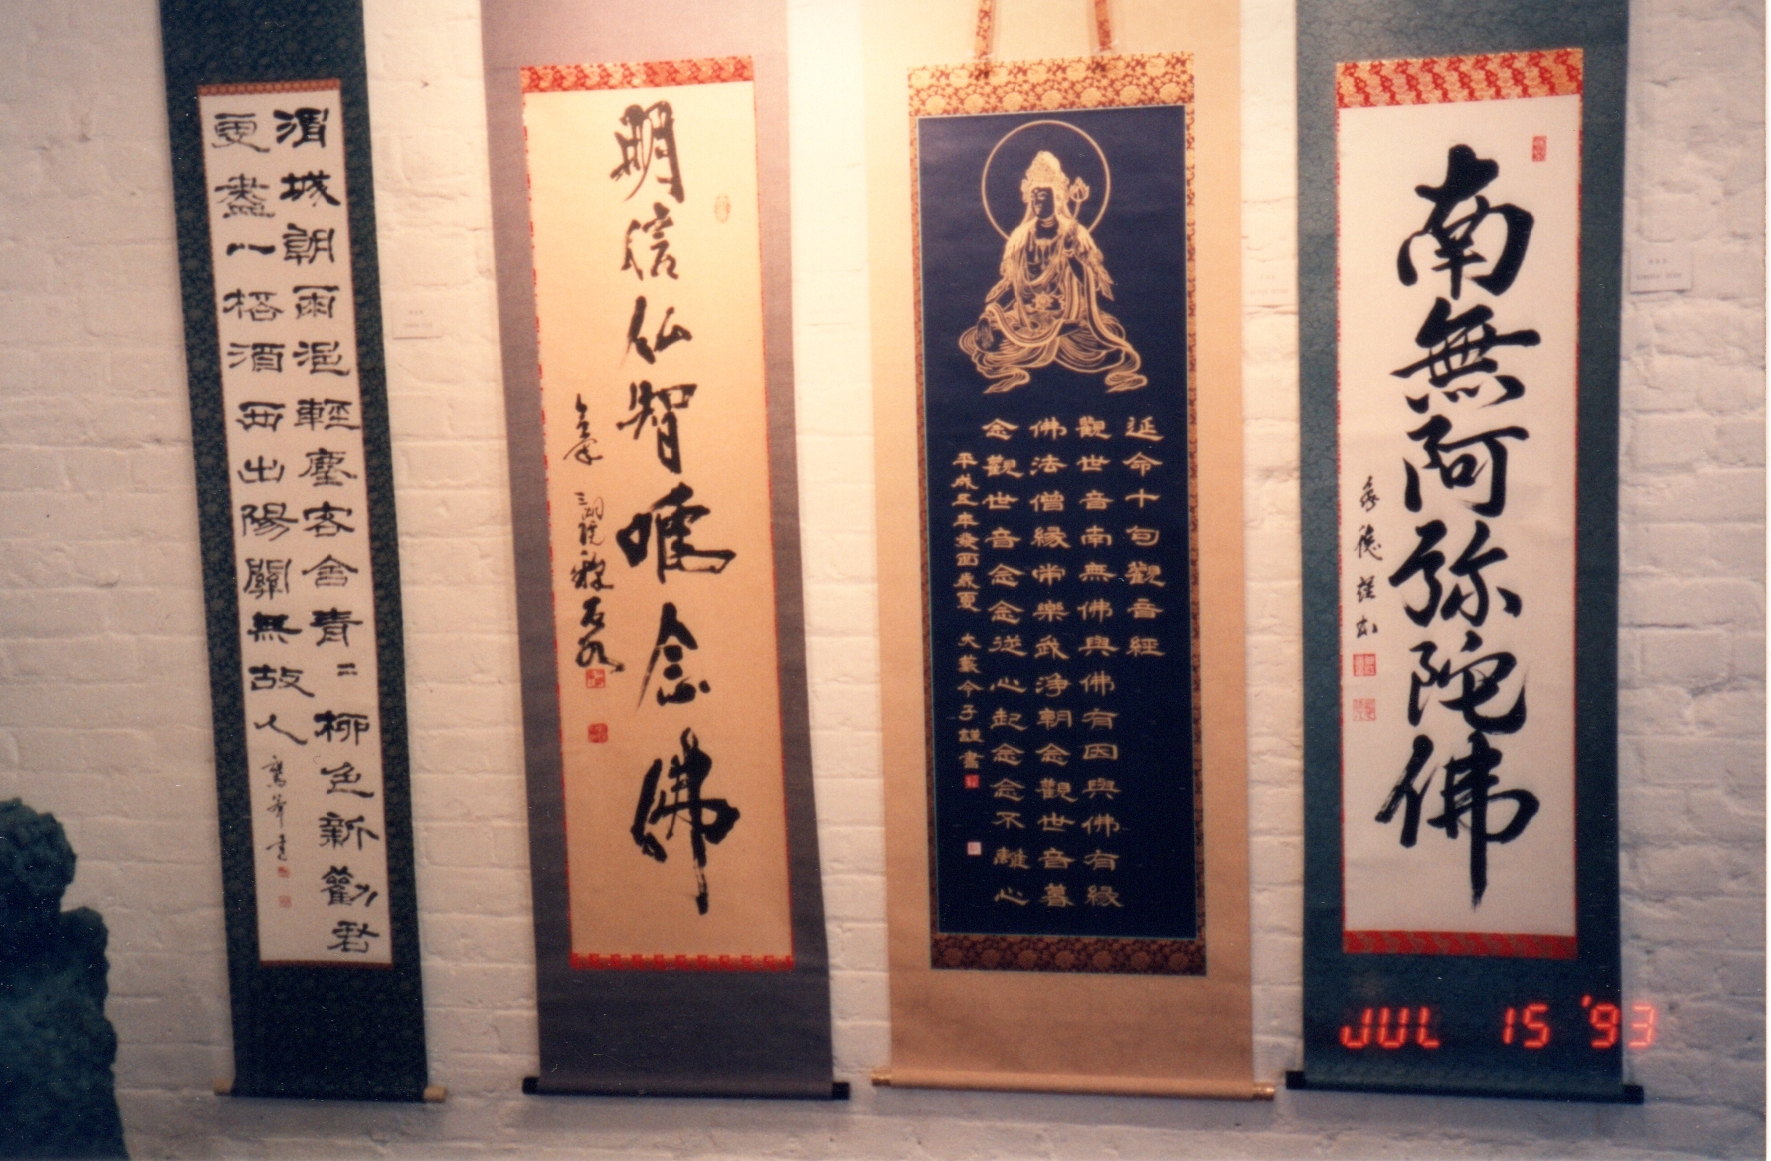 南無阿弥陀佛
延命十句觀音經
觀世音南無佛與佛有因與佛有縁
佛法僧縁常樂我浄朝念觀世音暮
念觀世音念念從心起念念不離心
平成五年癸酉 夏 大藪今子謹書
明信仏智唯念佛
渭城朝雨浥輕塵客舍青〻柳色新勸君
更盡一桮酒西出陽關無故人
JUL 15 '93